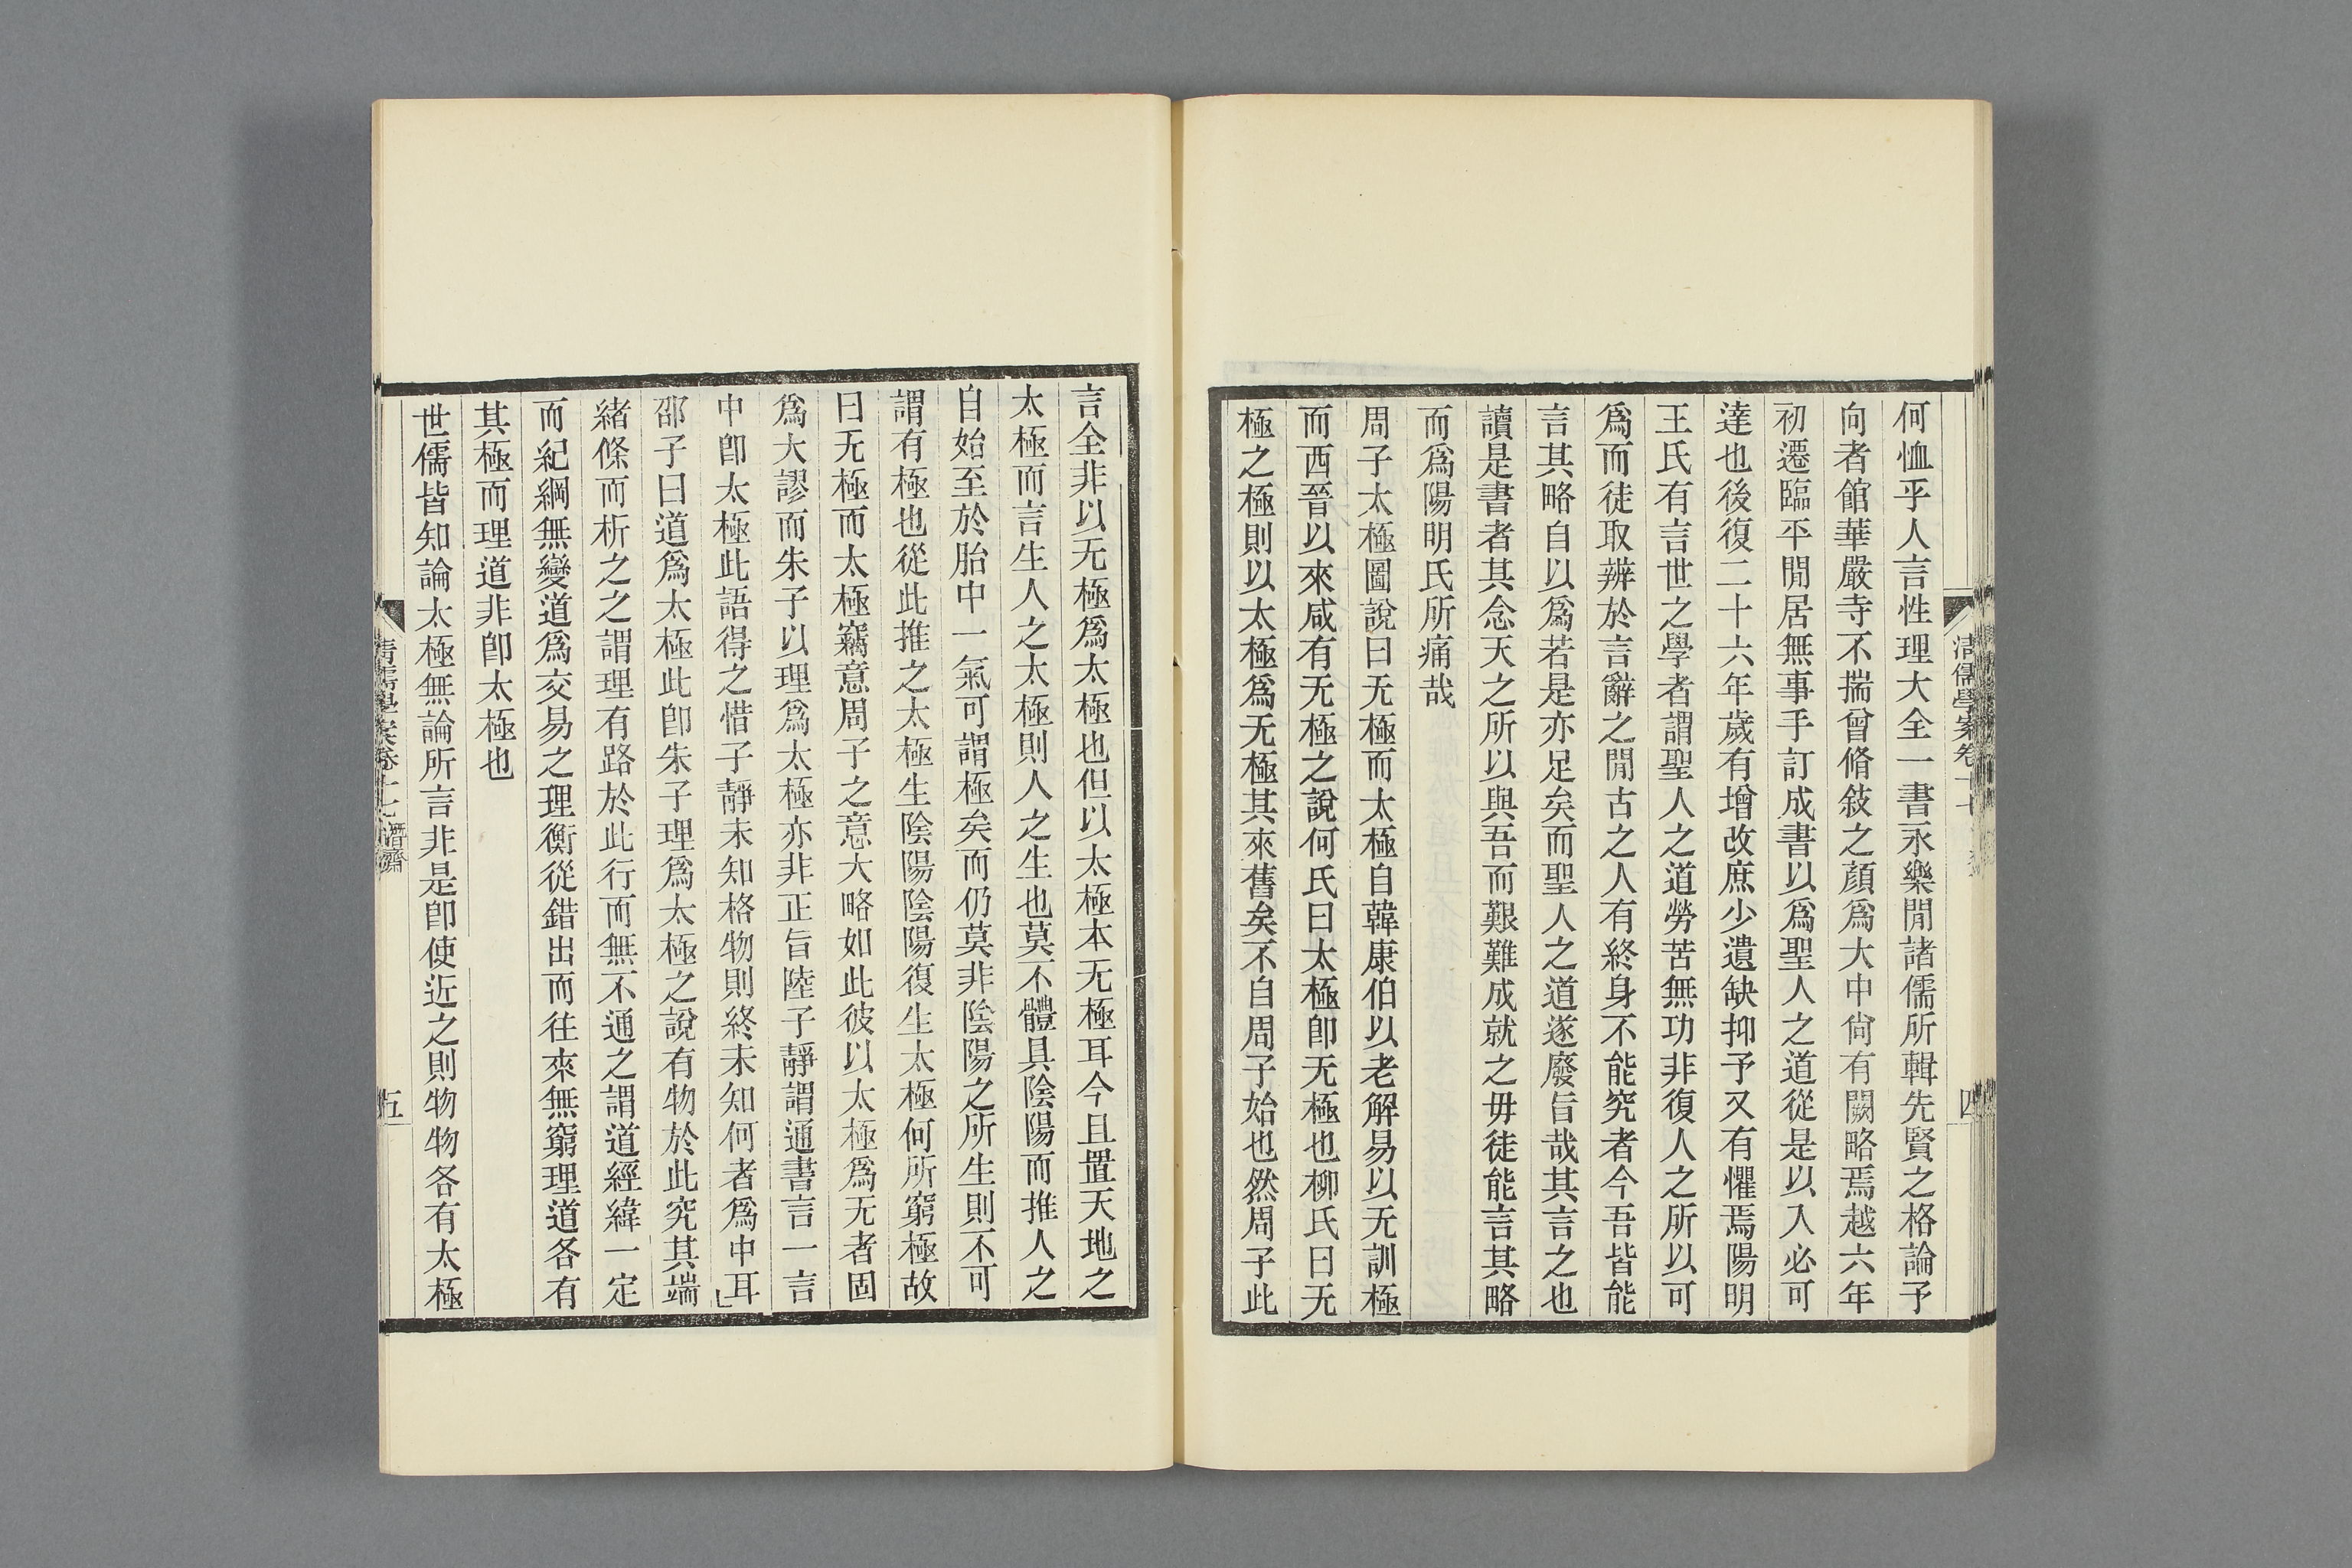 清儒學案卷十七
四
何恤乎人言性理大全一書永樂閒諸儒所輯先賢之格論予
向者館華嚴寺不揣曾脩敍之顏爲大中尙有闕略焉越六年
初遷臨平閒居無事手訂成書以爲聖人之道從是以入必可
達也後復二十六年歲有增改庶少遺缺抑予又有懼焉陽明
王氏有言世之學者謂聖人之道勞苦無功非復人之所以可
爲而徒取辨於言辭之閒古之人有終身不能究者今吾皆能
言其略自以爲若是亦足矣而聖人之道遂廢旨哉其言之也
讀是書者其念天之所以與吾而艱難成就之毋徒能言其略
而爲陽明氏所痛哉
周子太極圖說曰无極而太極自韓康伯以老解易以无訓極
而西晉以來咸有无極之說何氏曰太極卽无極也柳氏曰无
極之極則以太極爲无極其來舊矣不自周子始也然周子此
言全非以无極爲太極也但以太極本无極耳今且置天地之
太極而言生人之太極則人之生也莫不體具陰陽而推人之
自始至於胎中一氣可謂極矣而仍莫非陰陽之所生則不可
謂有極也從此推之太極生陰陽陰陽復生太極何所窮極故
曰无極而太極竊意周子之意大略如此彼以太極爲无者固
爲大謬而朱子以理爲太極亦非正旨陸子靜謂通書言一言
中卽太極此語得之惜子靜未知格物則終未知何者爲中耳
邵子曰道爲太極此卽朱子理爲太極之說有物於此究其端
緒條而析之之謂理有路於此行而無不通之謂道經緯一定
而紀綱無變道爲交易之理衡從錯出而往來無窮理道各有
其極而理道非卽太極也
世儒皆知論太極無論所言非是卽使近之則物物各有太極
清儒學案卷十七 潛齋
五